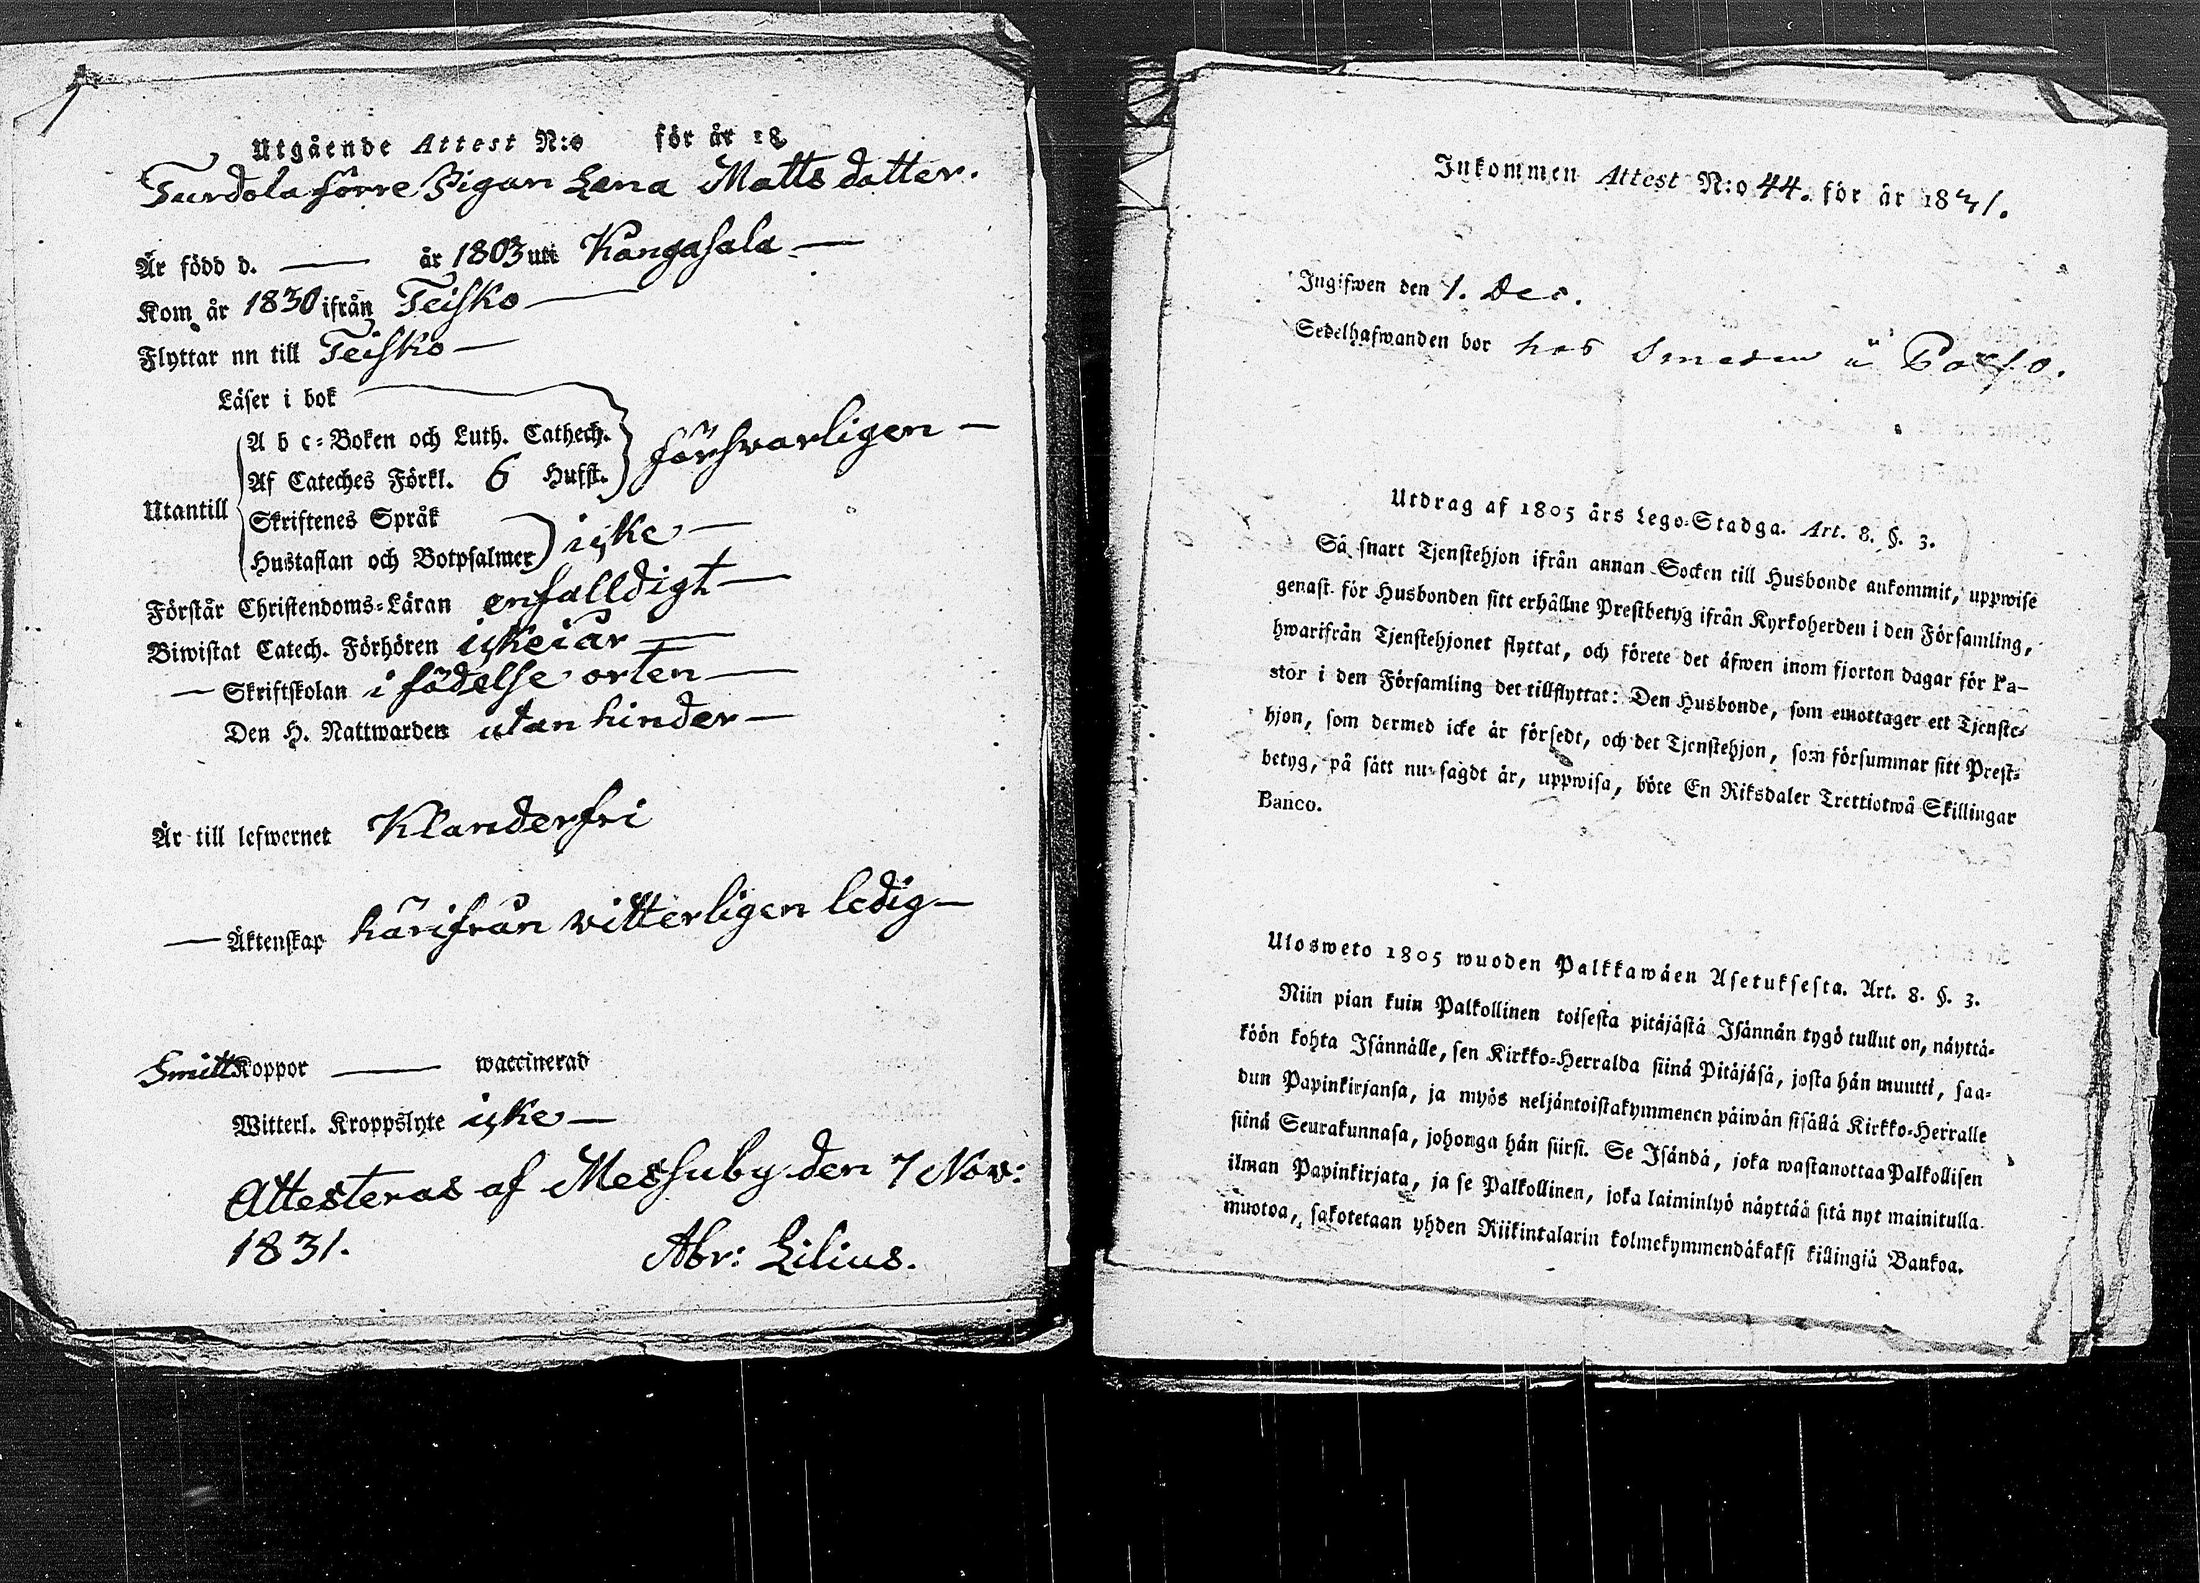 Utgående Attest N:o för år 18
Turdola förre Pigan Lena Matts dotter.
Är född d. — år 1803 uti Kangasala —
Kom år 1830 ifrån Teisko —
Flyttar nn till Teisko —
Läser i bok
A b c-Boken och Luth. Cathech.
Af Cateches Förkl. 6 Hufst. försvarligen —
Utantill
Skriftenes Språk
Hustaflan och Botpsalmer icke —
Förstår Christendoms-Läran enfalldigt —
Biwistat Catech. Förhören icke i år —
— Skriftskolan i födelse orten —
Den H. Nattwarden utan hinder —
Är till lefwernet Klanderfri
— Äktenskap härifrån vitterligen ledig —
Smitt Koppor — waccinerad
Witterl. Kroppslyte icke —
Attesteras af Messuby den 7 Nov:
1831. Abr: Lilius.
Inkommen Attest N:o 44. för år 1831.
Ingifwen den 1. Dec.
Sedelhafwanden bor hos Smeden
Utdrag af 1805 års Lego-Stadga. Art. 8. §. 3.
Så snart Tjenstehjon ifrån annan Socken till Husbonde ankommit, uppwise
genast för Husbonden sitt erhållne Prestbetyg ifrån Kyrkoherden i den Församling,
hwarifrån Tjenstehjonet flyttat, och förete det äfwen inom fjorton dagar för Pa-
stor i den Församling det tillflyttat: Den Husbonde, som emottager ett Tjenste-
hjon, som dermed icke är försedt, och det Tjenstehjon, som försummar sitt Prest-
betyg, på sätt nu sagdt är, uppwisa, böte En Riksdaler Trettiotwå Skillingar
Banco.
Ulosweto 1805 wuoden Palkkawäen Asetuksesta. Art. 8. §. 3.
Niin pian kuin Palkollinen toisesta pitäjästä Isännän tygö tullut on, näyttä-
köön kohta Isännälle, sen Kirkko-Herralda siinä Pitäjäsä, josta hän muutti, saa-
dun Papinkirjansa, ja myös neljäntoistakymmenen päiwän sisällä Kirkko-Herralle
siinä Seurakunnasa, johonga hän siirsi. Se Isändä, joka wastanottaa Palkollisen
ilman Papinkirjata, ja se Palkollinen, joka laiminlyö näyttää sitä nyt mainitulla
muotoa, sakotetaan yhden Riikintalarin kolmekymmendäkaksi killingiä Bankoa.